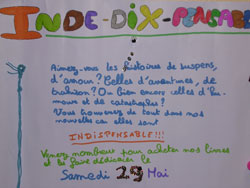 INDE-DIX-PENSABLE
Aimez-vous les histoires de suspens,
d'amour? Celles d'aventures, de
trahison? Ou bien encore celles d'hu-
mour et de catastrophes?
Vous trouverez de tout dans nos
nouvelles car elles sont
INDISPENSABLE!!!
Venez nombreux pour acheter nos livres
et les faire dédicacer le
Samedi 29 Mai